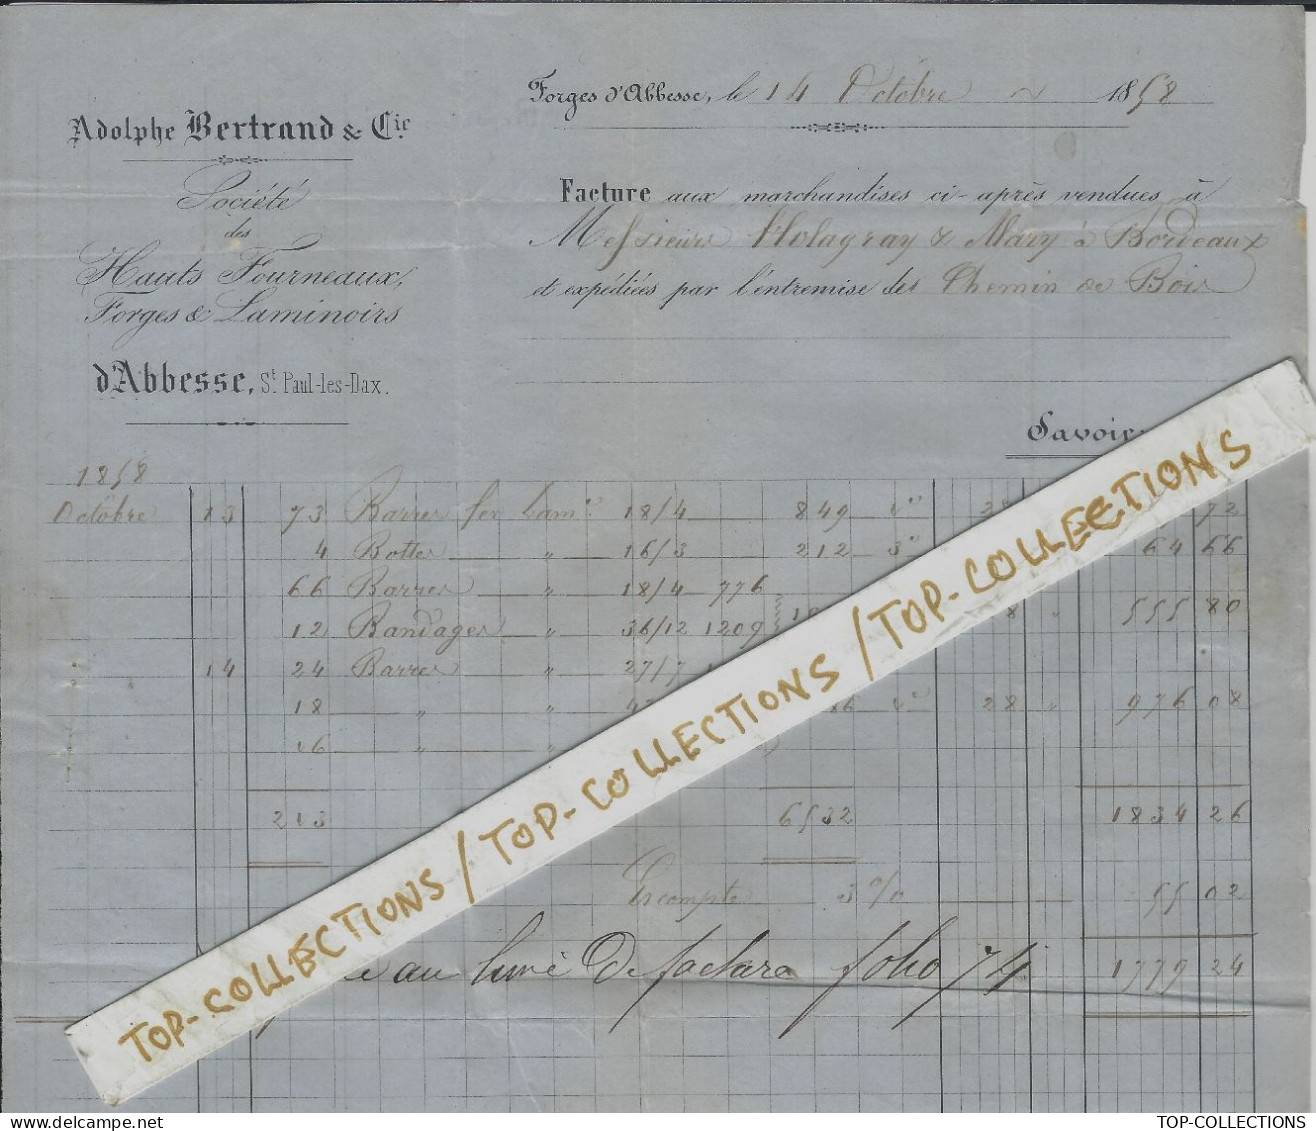 Forges d'Abbesse, le 14 Octobre 1858
Adolphe Bertrand & Cie
Société
des
Hauts Fourneaux,
Forges & Laminoirs
d'Abbesse, St Paul-les-Dax.
Facture aux marchandises ci-après vendues à
Messieurs Holagray & Mary à Bordeaux
et expédiées par l'entremise des Chemin de Bois
Savoir
1858
Octobre 13 73 Barres fer Lam 18/4 849 72
4 Bottes " 16/3 212 64 66
66 Barres " 18/4 776
12 Bandages " 36/12 1209 8 " 555 80
14 24 Barres " 27/7
18 " 28 " 976 08
16 " "
213 6532 1834 26
Escompte 3 % 55 02
1779 24
au livre De factura folio 74
TOP-COLLECTIONS / TOP-COLLECTIONS / TOP-COLLECTIONS
www.delcampe.net
TOP-COLLECTIONS